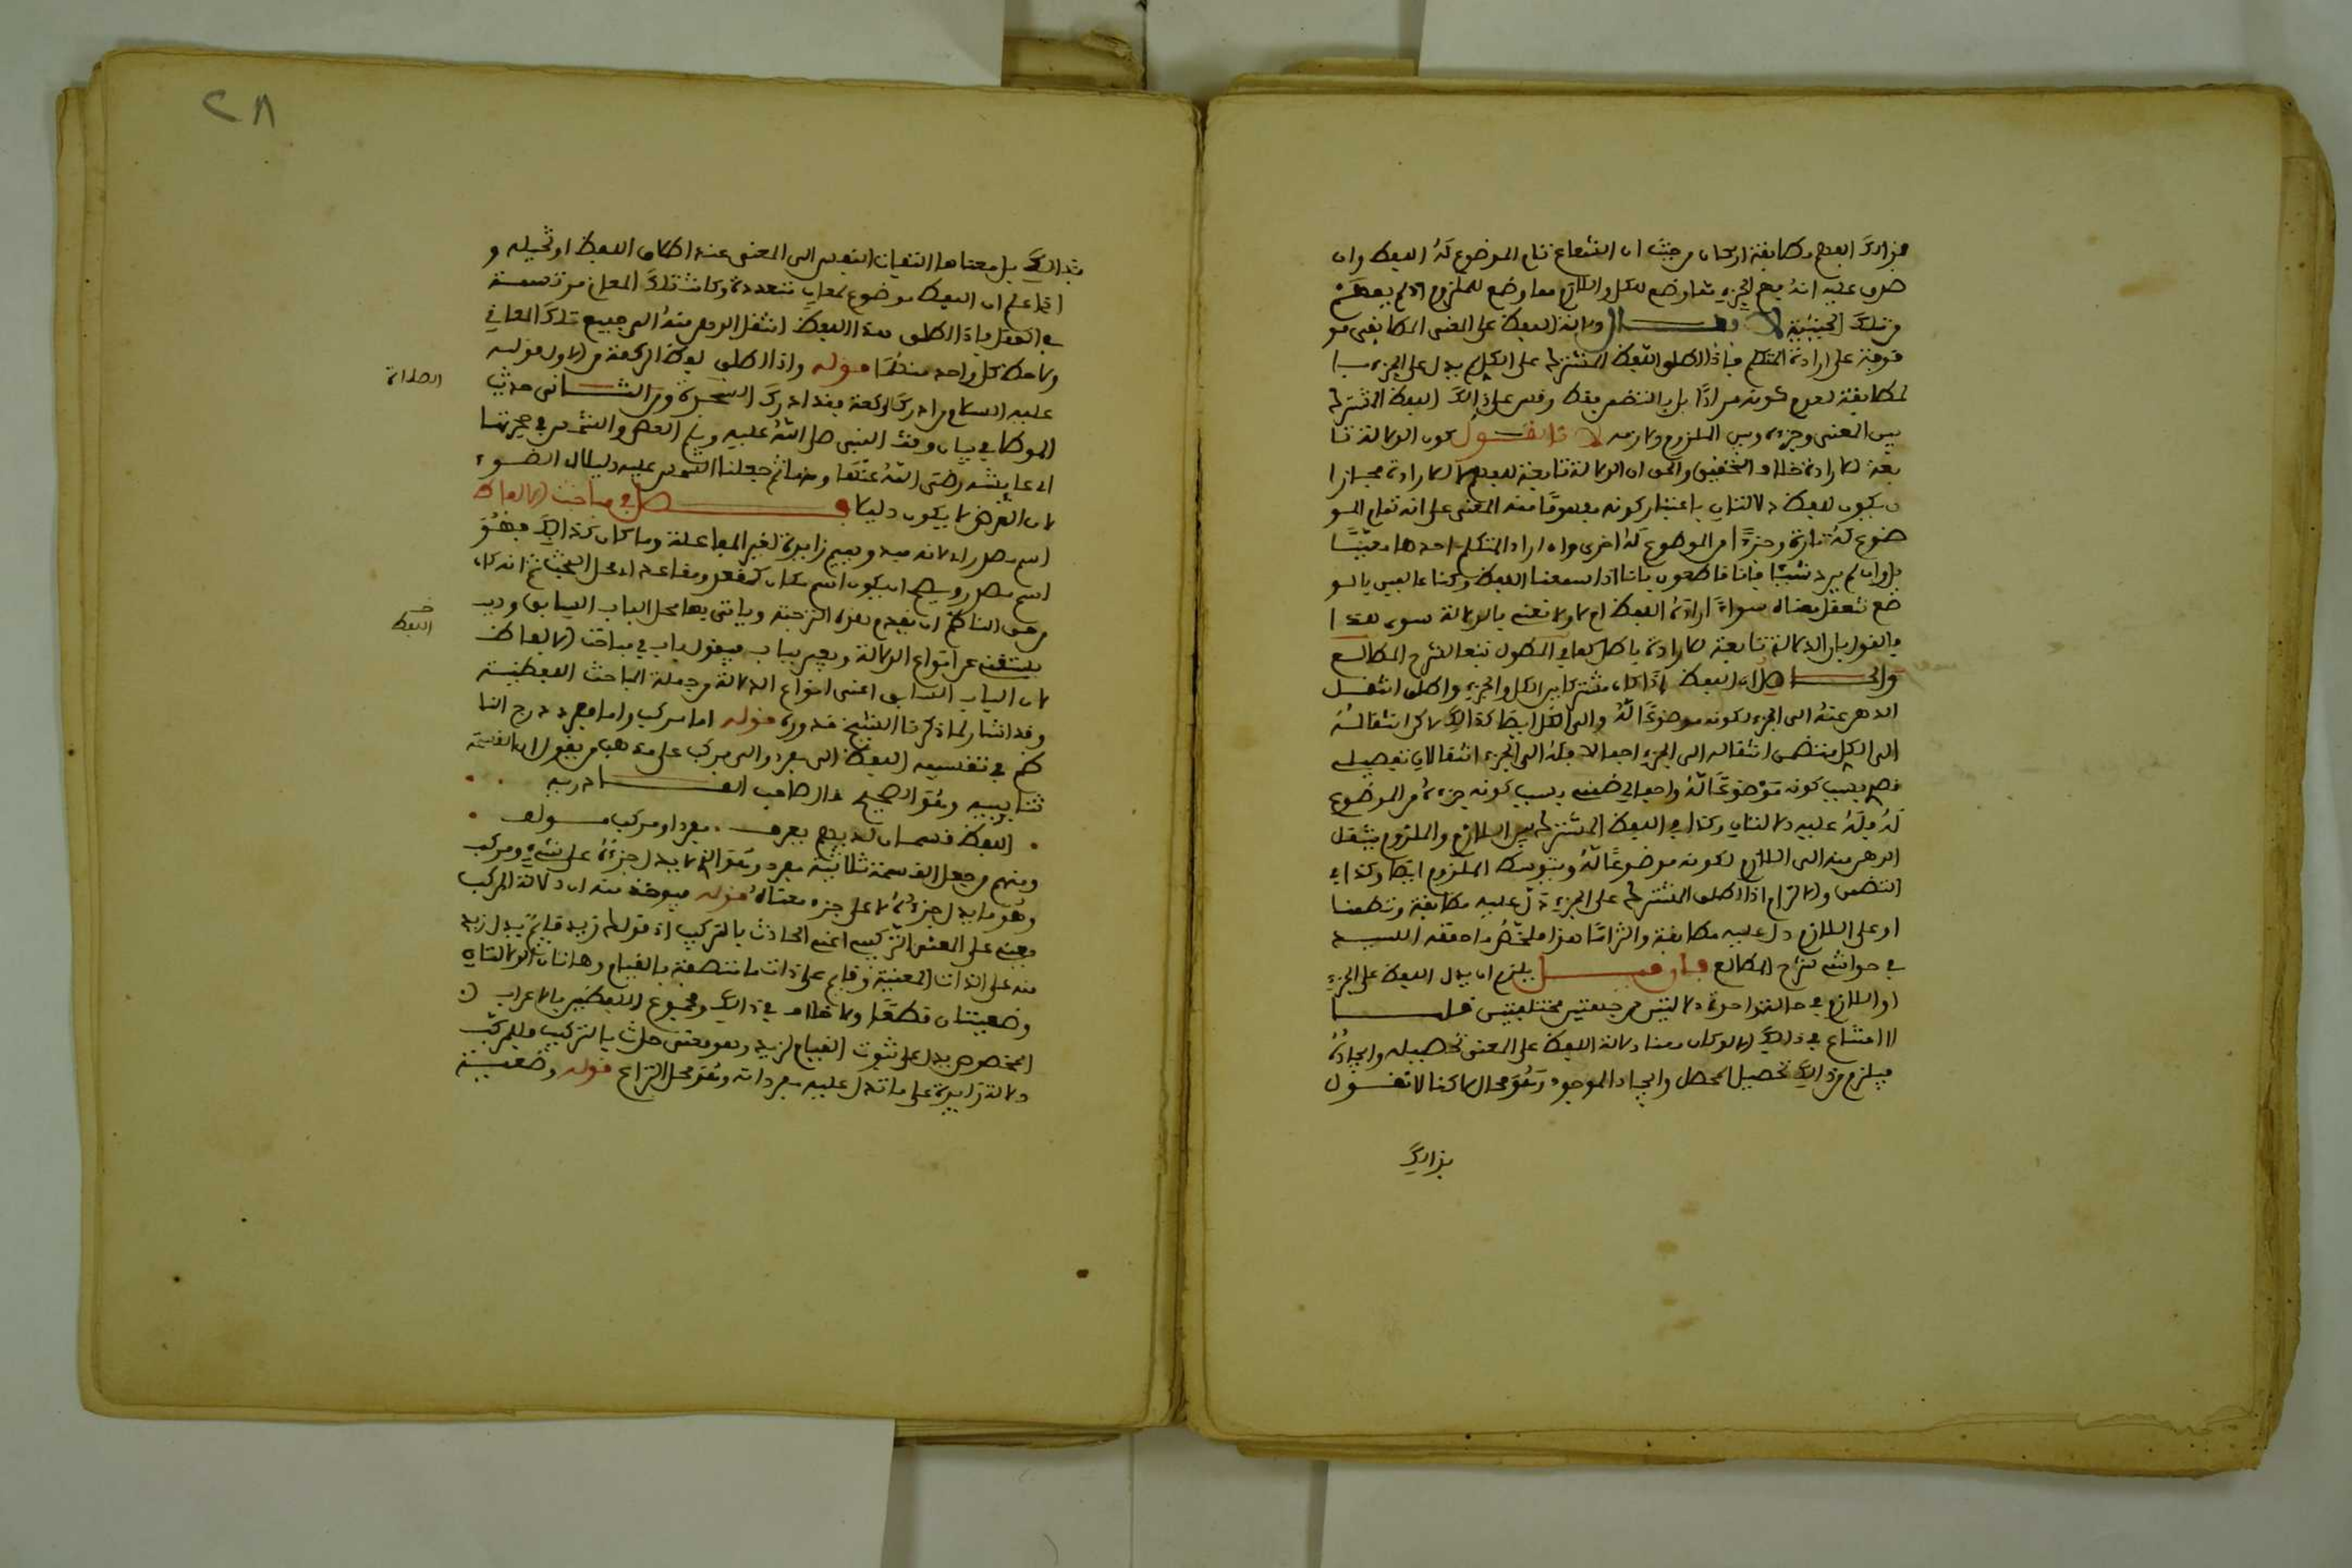 فذالك الفهم مطابقة وان كان من حيث ان الشعاع تمام الموضوع له اللفظ وان
صدق عليه انه فهم الجزء مما وضع للكل واللازم مما وضع للملزوم اذ لم يفهم
من تلك الحيثية لا يقال دلالة اللفظ على المعنى المطابقي مو
قوفة على ارادة المتكلم فاذا اطلق اللفظ المشترك على الكل لم يدل على الجزء با
لمطابقة لعدم كونه مرادا بل بالتضمن فقط وقس على ذالك اللفظ المشترك
بين المعنى وجزءه وبين الملزوم ولازمه لانا نقول كون الدلالة تا
بعة للارادة خلاف التحقيق والحق ان الدلالة تابعة للعلم لا للارادة
يكون للفظ دلالتان باعتبار كونه مفهوما منه المعنى على انه تمام المو
ضوع له تارة وجزءا من الموضوع له اخرى وان اراد المتكلم احدهما معينا
بل وان لم يرد شيئا فانا قاطعون بانا اذا سمعنا اللفظ وكنا عالمين بالو
ضع نتعقل معناه سواء اراده اللفظ ام لا ولا نعني بالدلالة سوى هذا
فالقول بان الدلالة تابعة للارادة باطل كما في المطول تبعا لشرح المطالع
والحاصل ان اللفظ اذا كان مشتركا بين الكل والجزء واطلق انتقل
الذهن عنه الى الجزء لكونه موضوعا له والى الكل ايضا كذالك لاكن انتقاله
الى الكل يتضمن انتقاله الى الجزء اجمالا فله الى الجزء انتقالان تفصيلي
قصد بسبب كونه موضوعا له واجمالي ضمني بسبب كونه جزءا من الموضوع
له فله عليه دلالتان وكذا في اللفظ المشترك بين اللازم والملزوم ينتقل
الذهن منه الى اللازم لكونه موضوعا له وبتوسط الملزوم ايضا وكذا في
التضمن والالتزام اذا اطلق المشترك على الجزء دل عليه مطابقة وتضمنا
او على اللازم دل عليه مطابقة والتزاما هذا ملخص ما حققه السيد
في حواشي شرح المطالع فان قيل يلزم ان يدل اللفظ على الجزء
او اللازم في حالة واحدة دلالتين من جهتين مختلفتين قلنا
لا امتناع في ذالك الا لو كان معنا دلالة اللفظ على المعنى تحصيله وايجاده
فيلزم من ذالك تحصيل الحاصل وايجاد الموجود وهو محال لاكنا لا نقول
بذالك
٢٨
بذالك بل معناها التفات النفس الى المعنى عند اطلاق اللفظ او تخيله و
اذا علم ان اللفظ موضوع لمعان متعددة وكانت تلك المعاني مرتسمة
في العقل فاذا اطلق هذا اللفظ انتقل الذهن منه الى جميع تلك المعاني
ولاحظ كل واحد منهما قوله واذا اطلق لفظ الركعة من الاول قوله
عليه السلام من ادرك ركعة فقد ادرك السجدة ومن الثاني حديث
الصلاة
الموطا في بيان وقت النبي صلى الله عليه وسلم العصر والشمس في حجرتها
اي عايشة رضي الله عنها وعنا ثم جعلنا الشمس عليه دليلا اي الضوء
لان القرص لا يكون دليلا فصل في مباحث الالفاظ
اسم مصدر اي لانه مبدو بميم زايدة لغير المفاعلة وما كان كذالك فهو
اسم مصدر ويصح ان يكون اسم مكان كمفعل ومقاعد اي محل البحث ثم انه كان
من حق الناظم ان يقدم هذه الترجمة وياتي بها محل الباب السابق و
اللفظ
يستغني عن انواع الدلالة ويعبر بباب فيقول باب في مباحث الالفاظ
لان الباب السابق اعني انواع الدلالة من جملة المباحث اللفظية
وقد اشار لما ذكرنا الشيخ قدورة قوله اما مركب واما مفرد درج النا
ظم في تقسيمه اللفظ الى مفرد والى مركب على مذهب من يقول ان القسمة
ثنايية وهو الصحيح قال صاحب القادرية
اللفظ قسمان لديهم يعرف . مفرد او مركب مولف
ومنهم من جعل القسمة ثلاثية مفرد وهو الذي لا يدل جزءه على شيء ومركب
وهو ما يدل جزءه لا على جزء معناه قوله فيوخذ منه ان دلالة المركب
معنية على المعنى التركيبي اعني الحادث بالتركيب اذ قولك زيد قايم يدل زيد
منه على الذات المعينة وقايم على ذات ما متصفة بالقيام وهاتان الدلالتان
وضعيتان قطعا ولا خلاف في ذالك ومجموع اللفظين بالاعراب
المخصوص يدل على ثبوت القيام لزيد وهو معنى حدث بالتركيب فللمركب
دلالة زايدة على ما تدل عليه مفرداته وهو محل النزاع قوله وضعية